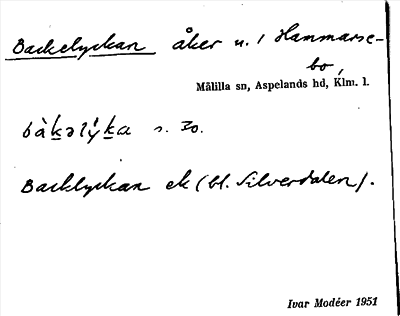 Backelyckan åker u. / Hammarse-
bo,
Målilla sn, Aspelands hd, Klm. l.
bàkəlýka s. 30.
Backlyckan ek (bl. Silverdalen).
Ivar Modéer 1951